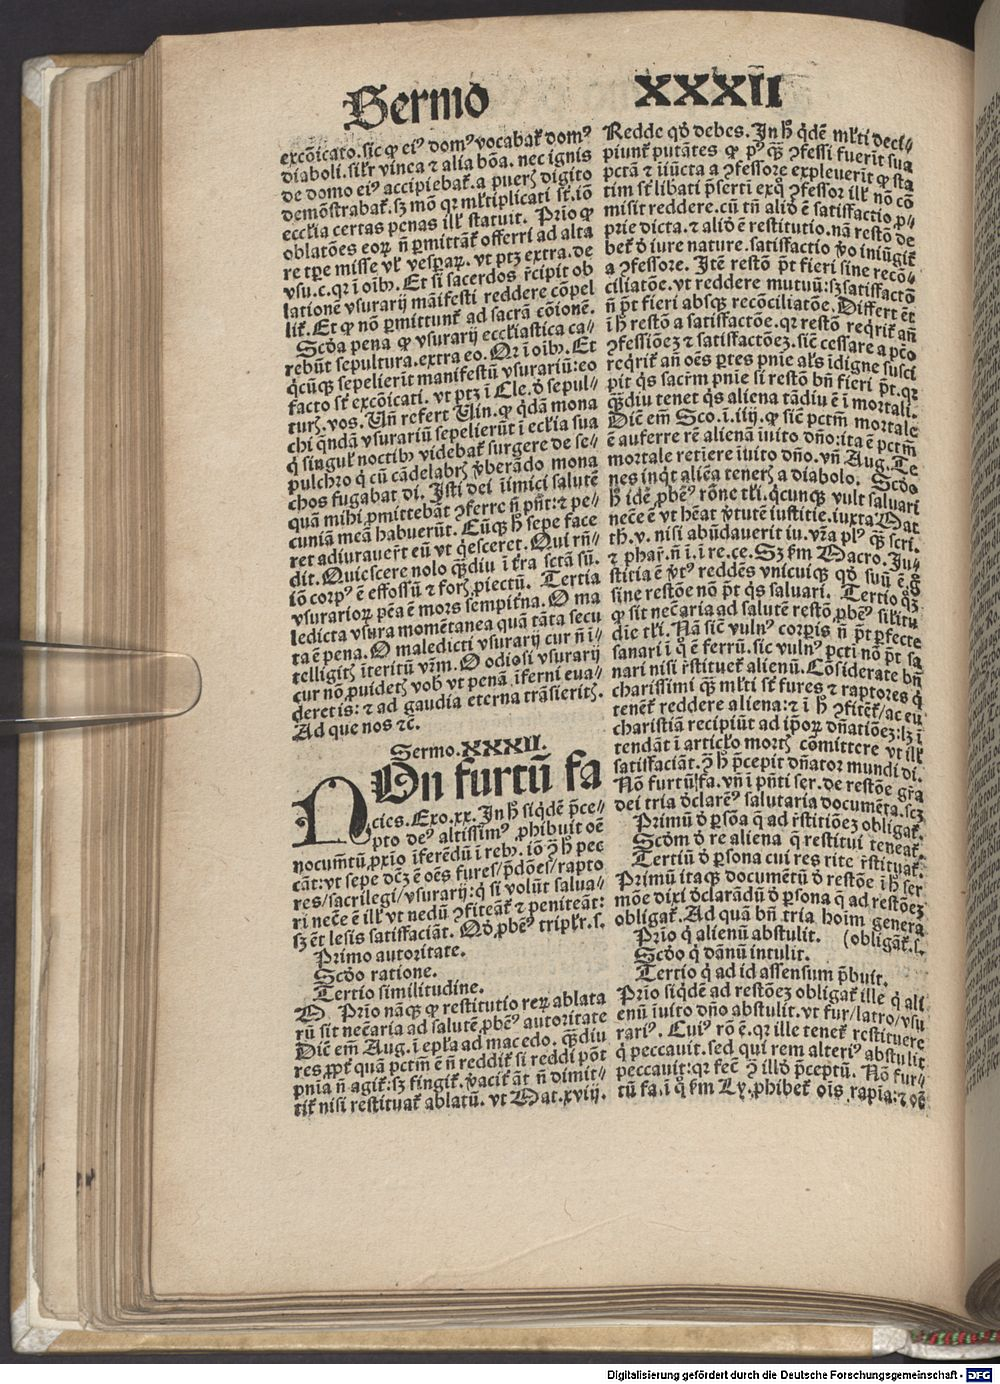 Sermo XXXII
excõicato. sic qͥ eiꝰ domꝰ vocabat᷑ domꝰ
diaboli. sil᷑r vinea ⁊ alia bõa. nec ignis
de domo eiꝰ accipiebat᷑. a pueris digito
demõstrabat᷑. sꝫ mõ qꝛ ml᷑tiplicati st᷑. iõ
eccl᷑ia certas penas ill᷑ statuit. Prĩo ꝙ
oblatões eoꝝ ñ ꝑmittãt᷑ offerri ad alta
re tꝑe misse vl᷑ vesꝑaꝝ. vt ptꝫ extra. de
vsu. c. qꝛ ĩ oĩbꝰ. Et si sacerdos r̃cipit ob
lationẽ vsurarij mãifesti reddere cõpel
lit᷑. Et ꝙ nõ ꝑmittunt᷑ ad sacrã cõionẽ.
Scd̃a pena ꝙ vsurarij eccl᷑iastica ca-
rebũt sepultura. extra eo. Qꝛ ĩ oĩbꝰ. Et
q̃cũqꝫ sepelierĩt manifestũ vsurariũ: eo
facto st᷑ excõicati. vt ptꝫ ĩ Cle. d̾ sepul-
turis. vos. Vñ refert Vin. ꝙ q̾dã mona
chi q̃ndã vsurariũ sepelierũt ĩ eccl᷑ia sua
q̾ singul᷑ noctibꝰ videbat᷑ surgere de se-
pulchro q̾ cũ cãdelabris v̾berãdo mona
chos fugabat di. Isti dei ĩimici salutẽ
quã mihi ꝓmittebãt ꝯferre ñ pñt: ⁊ pe-
cuniã meã habuerũt. Cũqꝫ h̾ sepe face
ret adiurauer̃t eũ vt q̾esceret. Qui rñ-
dit. Quiescere nolo qꝫdiu ĩ t᷑ra sctã sũ.
iõ corpꝰ ẽ effossũ ⁊ foris ꝓiectũ. Tertia
vsurarioꝝ pẽa ẽ mors sempit᷑na. O ma
ledicta vsura momẽtanea quã tãta secu
ta ẽ pena. O maledicti vsurarij cur ñ ĩ-
telligitis ĩteritũ vr̃m. O odiosi vsurarij
cur nõ ꝓuidetis vob vt penã ĩferni eua-
deretis: ⁊ ad gaudia eterna trãsieritis.
Ad que nos ⁊c̃.
Sermo. XXXII.
NOn furtũ fa
cies. Exo. xx. In h̾ siq̾dẽ p̃ce-
pto deꝰ altissimꝰ ꝓhibuit oẽ
nocumẽtũ ꝓxĩo ĩferẽdũ ĩ rebꝰ. iõ ꝯ̃ h̾ pec
cãt: vt sepe dc̃ꝫ ẽ oẽs fures/p̃dões/rapto
res/sacrilegi/vsurarij: q̾ si volũt salua-
ri nec̃e ẽ ill᷑ vt nedũ ꝯfiteãt᷑ ⁊ peniteãt:
sꝫ ẽt lesis satisfaciãt. Qd̾ ꝓbẽꝰ tripl᷑r. s.
Primo autoritate.
Scd̾o ratione.
Tertio similitudine.
Prĩo nãqꝫ ꝙ restitutio reꝝ ablata
rũ sit nec̃aria ad salutẽ ꝓbẽꝰ autoritate
Dic̃ em̃ Aug. ĩ epl᷑a ad macedo. qꝫdiu
res ꝓpt᷑ quã pctm̃ ẽ ñ reddit᷑ si reddi põt
pnĩa ñ agit᷑: sꝫ fingit᷑. v̾acit᷑ ãt ñ dimit-
tit᷑ nisi restituat᷑ ablatũ. vt Mat. xviij.
Redde qd̾ debes. In h̾ q̾dẽ ml᷑ti deci-
piunt᷑ putãtes ꝙ pꝰ qꝫ ꝯfessi fuerĩt sua
pctã ⁊ iĩũcta a ꝯfessore expleuerĩt ꝙ sta
tim st᷑ libati p̃serti exq̾ ꝯfessor ill᷑ nõ cõ
misit reddere. cũ tñ aliđ ẽ satisfactio ꝓ-
prie dicta. ⁊ aliđ ẽ restitutio. nã restõ de
bet᷑ d̾ iure nature. satisfactio v̾o iniũgit᷑
a ꝯfessore. Itẽ restõ põt fieri sine recõ-
ciliatõe. vt reddere mutuũ: sꝫ satisfactõ
ñ põt fieri absqꝫ recõciliatõe. Differt ẽt
ĩ h̾ restõ a satisfactõe. qꝛ restõ req̾rit᷑ añ
ꝯfessiõeꝫ ⁊ satisfactõeꝫ. sic̃ cessare a pc̃o
req̾rit᷑ añ oẽs ꝑtes pnĩe al᷑s ĩdigne susci
pit q̾s sacr̃m pnĩe si restõ bñ fieri põt. qꝛ
qꝫdiu tenet q̾s aliena tãdiu ẽ ĩ mortali.
Dic̃ em̃ Sco. ĩ. iiij. ꝙ sic̃ pctm̃ mortale
ẽ auferre rẽ alienã ĩuito dño: ita ẽ pctm̃
mortale retinere ĩuito dño. vñ Aug. Te
nes inq̾t aliẽa teneris a diabolo. Scd̾o
h̾ idẽ ꝓbẽꝰ rõne tl᷑i. q̾cunqꝫ vult saluari
nec̃e ẽ vt hẽat v̾tutẽ iustitie. iuxta Mat
th. v. nisi abũdauerit iu. vr̃a plꝰ qꝫ scri.
⁊ phar̃. ñ ĩ. ĩ re. ce. Sꝫ ẜm Macro. Iu-
stitia ẽ v̾tꝰ reddẽs vnicuiqꝫ qd̾ suũ ẽ. g̾
sine restõe nõ põt q̾s saluari. Tertio q̾ꝫ
ꝙ sit nec̃aria ad salutẽ restõ ꝓbẽꝰ sil᷑itu
die tl᷑i. Nã sic̃ vulnꝰ corꝑis ñ põt ꝑfecte
sanari ĩ q̾ ẽ ferrũ. sic vulnꝰ pcti nõ põt sa
nari nisi r̃stituet᷑ alienũ. Cõsiderate bñ
charissimi qꝫ ml᷑ti st᷑ fures ⁊ raptores q̾
tenet᷑ reddere aliena: ⁊ ĩ h̾ ꝯfitẽt᷑/ac eu
charistiã recipiũt ad ip̃oꝝ dñatiõeꝫ: lꝫ ĩ
tendãt ĩ articl᷑o mortis cõmittere vt ill᷑
satisfaciãt. ꝯ̃ h̾ p̃cepit dñator mundi di.
Nõ furtũ fa. vñ ĩ pñti ser. de restõe gr̃a
dei tria d̾clarẽꝰ salutaria documẽta. scꝫ
Primũ d̾ ꝑsõa q̃ ad r̃stitiõeꝫ obligat᷑.
Scdm̃ d̾ re aliena q̃ restitui teneat᷑.
Tertiũ d̾ ꝑsona cui res rite r̃stituat᷑.
Primũ itaqꝫ documẽtũ d̾ restõe ĩ h̾ ser
mõe dixi d̾clarãdũ d̾ ꝑsona q̃ ad restõeꝫ
obligat᷑. Ad quã bñ tria hoĩm genera
Prĩo q̾ alienũ abstulit. (obligãt᷑. s.
Scd̾o q̾ dãnũ intulit.
Tertio q̾ ad id assensum p̃buit.
Prĩo siq̾dẽ ad restõeꝫ obligat᷑ ille q̾ ali
enũ ĩuito dño abstulit. vt fur/latro/vsu
rariꝰ. Cuiꝰ rõ ẽ. qꝛ ille tenet᷑ restituere
q̾ peccauit. sed qui rem alteriꝰ abstulit
peccauit: qꝛ fec̃ ꝯ̃ illđ p̃ceptũ. Nõ fur-
tũ fa. ĩ q̾ ẜm Ly. ꝓhibet᷑ oĩs rapĩa: ⁊ oẽ
Digitalisierung gefördert durch die Deutsche Forschungsgemeinschaft - DFG